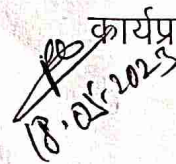 कार्यप्र
18.05.2023